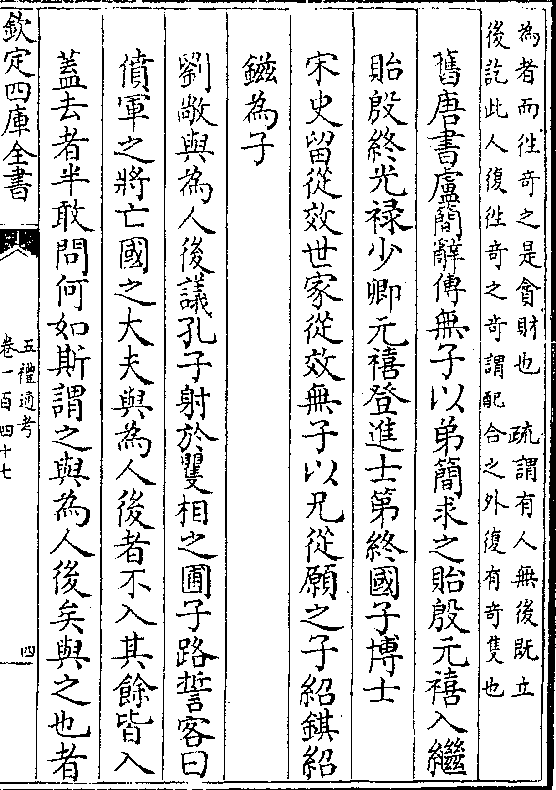 為者而往奇之是貪財也　疏謂有人無後既立
後訖此人復往奇之奇謂配合之外復有奇隻也
舊唐書盧簡辭傳無子以弟簡求之貽殷元禧入繼
貽殷終光禄少卿元禧登進士第終國子博士
宋史留從效世家從效無子以兄從願之子紹錤紹
鎡為子
劉敞與為人後議孔子射於矍相之圃子路誓客曰
僨軍之將亡國之大夫與為人後者不入其餘皆入
蓋去者半敢問何如斯謂之與為人後矣與之也者
欽定四庫全書
五禮通考
卷一百四十七
四